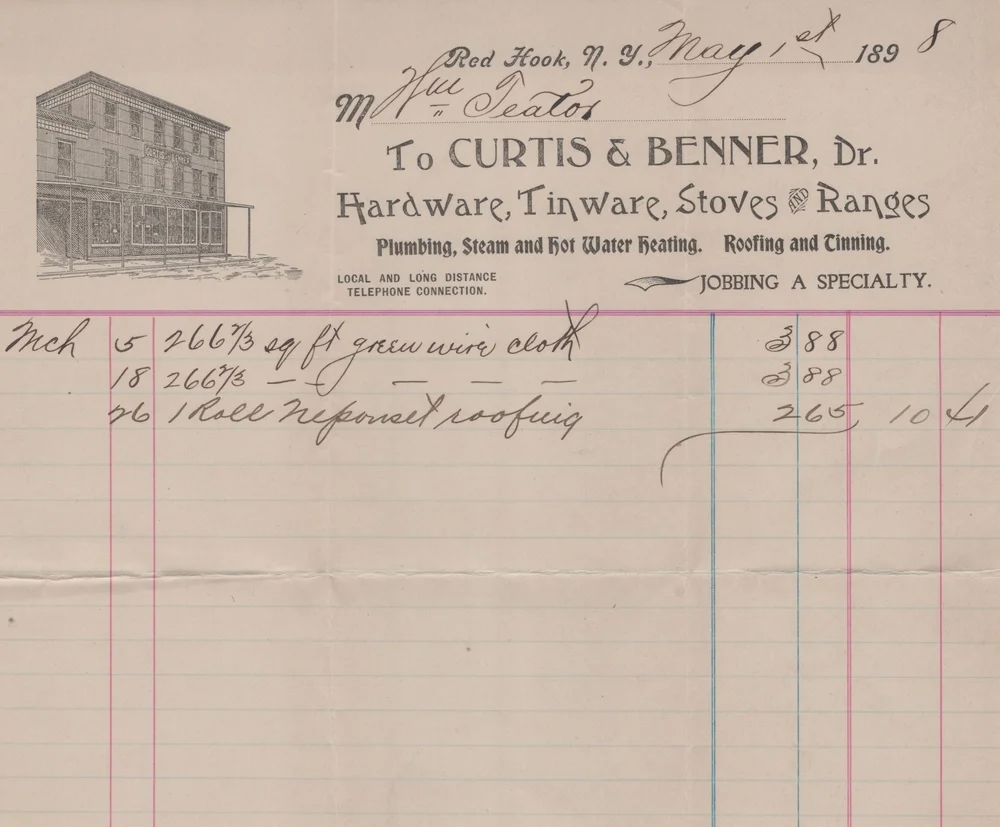 Red Hook, N. Y., May 1st 1898
M Wm Teator
To CURTIS & BENNER, Dr.
Hardware, Tinware, Stoves AND Ranges
Plumbing, Steam and Hot Water Heating. Roofing and Tinning.
LOCAL AND LONG DISTANCE
TELEPHONE CONNECTION.
JOBBING A SPECIALTY.
Mch 5 266 2/3 sq ft green wire cloth 3 88
18 266 2/3 — — — — — 3 88
26 1 Roll Neponset roofing 2 65 10 41